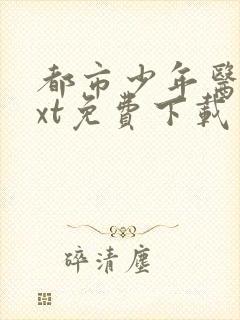 都市少年醫
xt免費下載
碎清塵